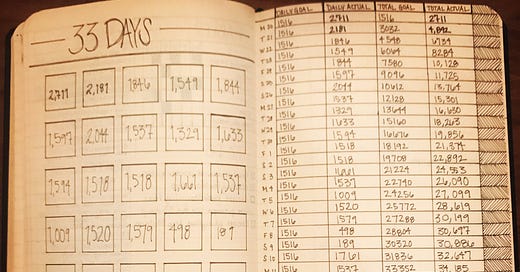 33 DAYS
2,711 2,181 1846 1,549 1,844
1,597 2,044 1,537 1,329 1,633
1,594 1,518 1,518 1,661 1,537
1,009 1520 1,579 498 189
DAILY GOAL DAILY ACTUAL TOTAL GOAL TOTAL ACTUAL
M 20 1516 2711 1516 2711
T 21 1516 2181 3032 4,892
W 22 1516 1846 4548 6738
T 23 1516 1549 6064 8284
F 24 1516 1844 7580 10,128
S 25 1516 1597 9096 11,725
S 26 1516 2044 10612 13,764
M 27 1516 1537 12128 15,301
T 28 1516 1329 13644 16,630
W 29 1516 1633 15160 18,263
T 30 1516 1594 16676 19,856
F 1 1516 1518 18192 21,374
S 2 1516 1518 19708 22,892
S 3 1516 1661 21224 24,553
M 4 1516 1537 22740 26,090
T 5 1516 1009 24256 27,099
W 6 1516 1520 25772 28,619
T 7 1516 1579 27288 30,199
F 8 1516 498 28804 30,697
S 9 1516 189 30320 30,886
S 10 1516 1761 31836 32,647
M 11 1516 1537 33352 34,185